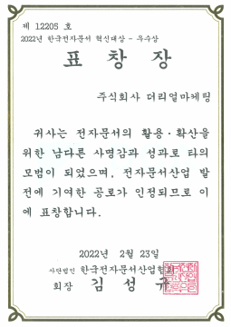 제 12205 호
2022년 한국전자문서 혁신대상 - 우수상
표 창 장
주식회사 더리얼마케팅
귀사는 전자문서의 활용·확산을
위한 남다른 사명감과 성과로 타의
모범이 되었으며, 전자문서산업 발
전에 기여한 공로가 인정되므로 이
에 표창합니다.
2022년 2월 23일
사단법인 한국전자문서산업협회
회장 김 성 규